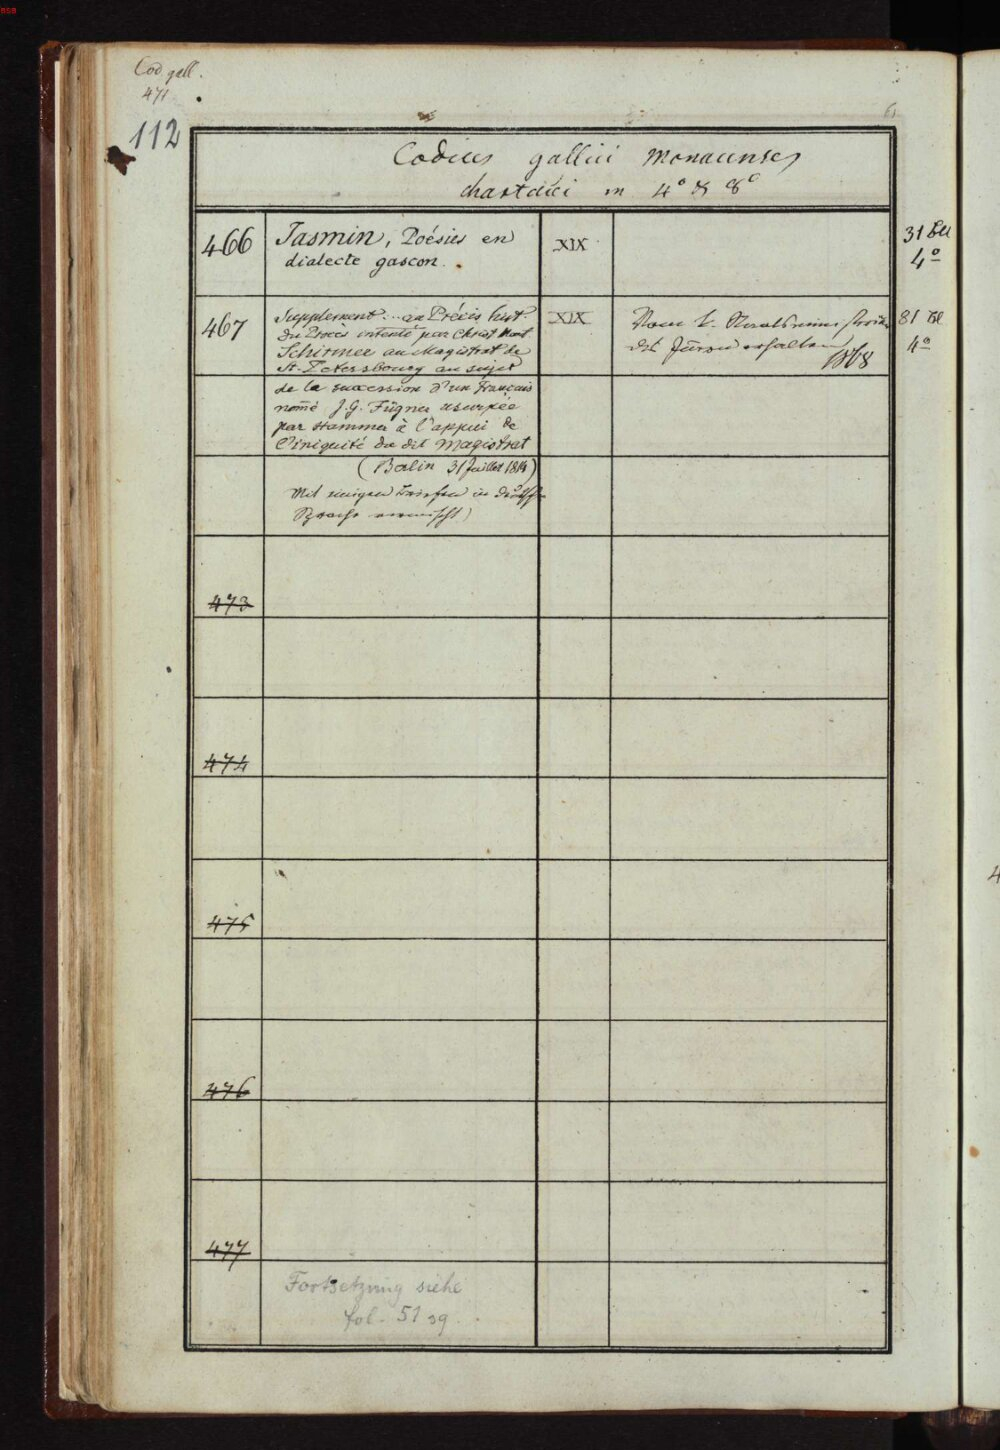 Cod gall.
471
112
Codices gallici monacenses
chartacei in 4° & 8°
466 Jasmin, Poésies en XIX 31 Bll
dialecte gascon. 4°
467 Supplement... au Précis hist. XIX Vom k. Staatsministerium 81 Bl
du Procès intenté par Christ des Äussern erhalten 4°
Schirmer au Magistrat de 1868
St. Petersbourg au sujet
de la succession d'un français
nomé J. G. Fügner usurpée
par Hammer à l'appui de
l'iniquité du dit Magistrat
(Berlin 31 Juillet 1814)
Mit einigen Briefen in deutscher
Sprache vermischt)
473
474
475
476
477
Fortsetzung siehe
fol. 51 sq.